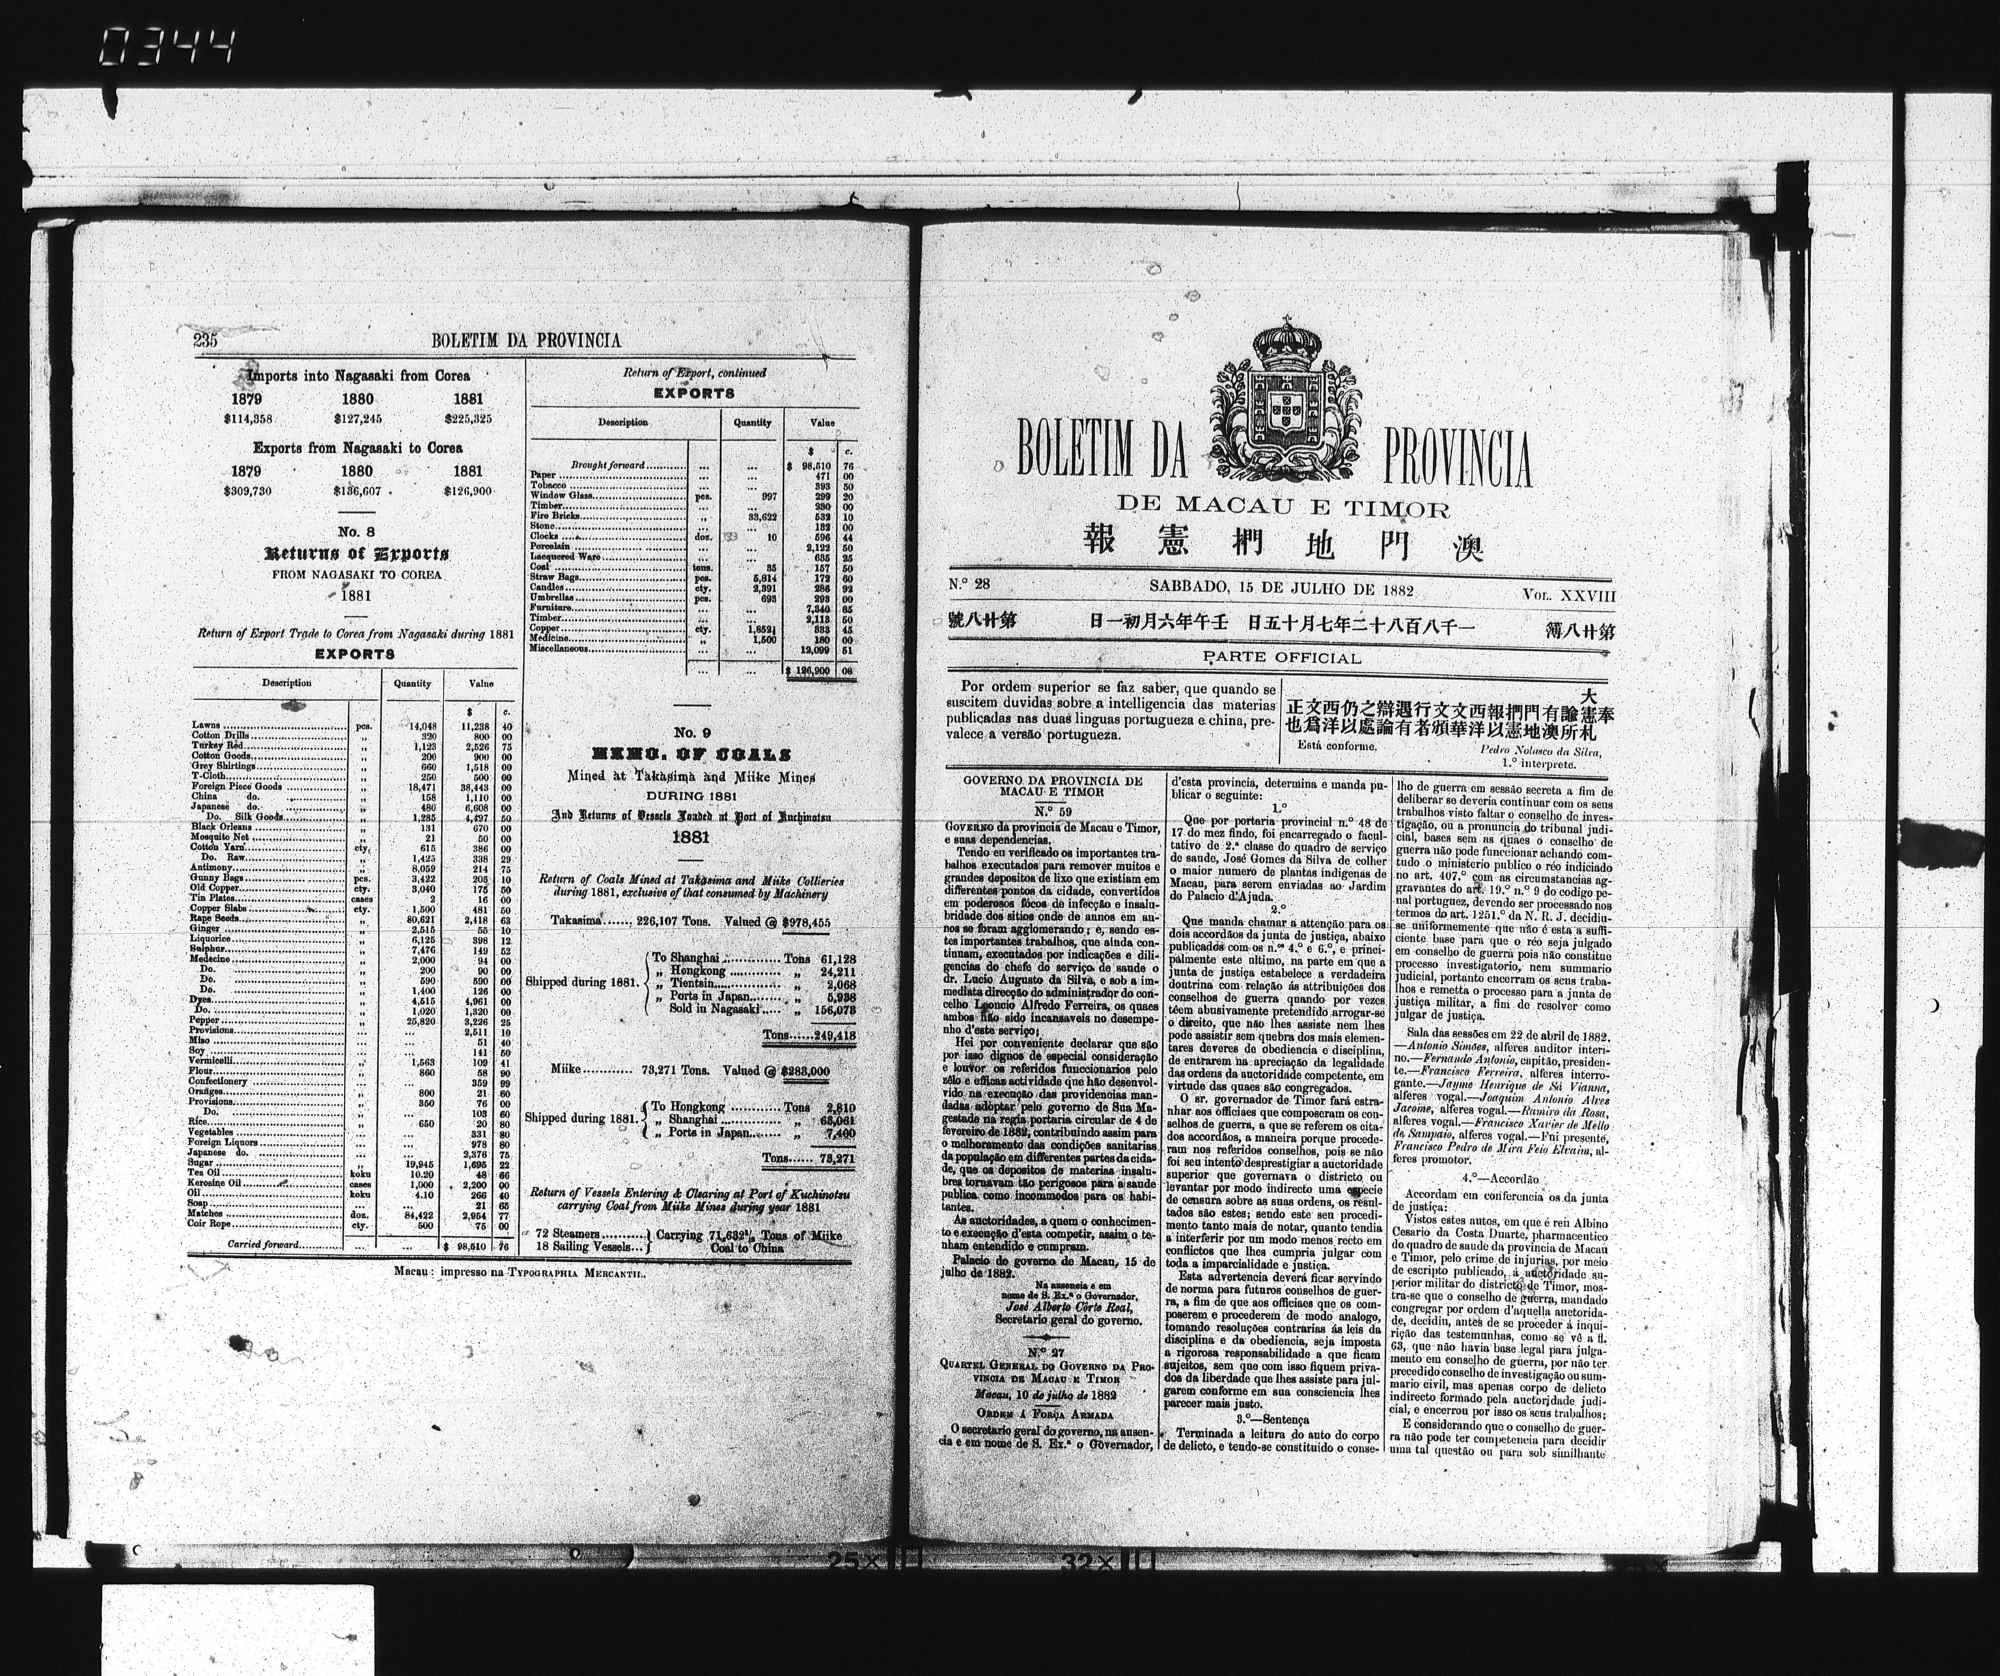 0344
235
BOLETIM DA PROVINCIA
Imports into Nagasaki from Corea
1879 1880 1881
$114,358 $127,245 $225,325
Exports from Nagasaki to Corea
1879 1880 1881
$309,730 $136,607 $126,900
No. 8
Returns of Exports
FROM NAGASAKI TO COREA
1881
Return of Export Trade to Corea from Nagasaki during 1881
EXPORTS
Description Quantity Value
$ c.
Lawns pcs. 14,048 11,238 40
Cotton Drills „ 320 800 00
Turkey Red „ 1,123 2,526 75
Cotton Goods „ 200 900 00
Grey Shirtings „ 660 1,518 00
T-Cloth „ 250 500 00
Foreign Piece Goods „ 18,471 38,443 00
China do. „ 158 1,110 00
Japanese do. „ 486 6,608 00
Do. Silk Goods „ 1,285 4,497 50
Black Orleans „ 131 670 00
Mosquito Net „ 21 50 00
Cotton Yarn cty. 615 386 00
Do. Raw „ 1,425 338 29
Antimony „ 8,059 214 75
Gunny Bags pcs. 3,422 205 10
Old Copper cty. 3,040 175 50
Tin Plates cases 2 16 00
Copper Slabs cty. 1,500 481 50
Rape Seeds „ 80,621 2,418 63
Ginger „ 2,515 55 10
Liquorice „ 6,125 398 12
Sulphur „ 7,476 149 52
Medecine „ 2,000 94 00
Do. „ 200 90 00
Do. „ 590 590 00
Do. „ 1,400 126 00
Dyes „ 4,515 4,961 00
Do. „ 1,020 1,320 00
Pepper „ 25,820 3,226 25
Provisions ... ... 2,511 10
Miso ... ... 51 40
Soy ... ... 141 50
Vermicelli „ 1,563 109 41
Flour „ 860 58 90
Confectionery ... ... 359 99
Oranges „ 800 21 60
Provisions „ 350 76 00
Do. ... 103 60
Rice „ 650 20 80
Vegetables ... ... 331 80
Foreign Liquors ... ... 978 80
Japanese do. ... ... 2,376 75
Sugar „ 19,945 1,695 22
Tea Oil koku 10.20 48 66
Kerosine Oil cases 1,000 2,200 00
Oil koku 4.10 266 40
Soap ... ... 21 65
Matches doz. 84,422 2,954 77
Coir Rope cty. 500 75 00
Carried forward ... ... $ 98,510 76
Return of Export, continued
EXPORTS
Description Quantity Value
$ c.
Brought forward ... ... $ 98,510 76
Paper ... ... 471 00
Tobacco ... ... 393 50
Window Glass pcs. 997 299 20
Timber ... ... 230 00
Fire Bricks „ 33,622 532 10
Stone ... ... 132 00
Clocks doz. 10 596 44
Porcelain ... ... 2,122 50
Lacquered Ware ... ... 635 25
Coal tons. 35 157 50
Straw Bags pcs. 5,814 172 60
Candles cty. 2,391 286 92
Umbrellas pcs. 693 293 00
Furniture ... ... 7,340 85
Timber ... ... 2,113 50
Copper cty. 1,852½ 333 45
Medicine „ 1,500 180 00
Miscellaneous ... ... 12,099 51
... ... $ 126,900 08
No. 9
MEMO. OF COALS
Mined at Takasima and Miike Mines
DURING 1881
And Returns of Vessels Loaded at Port of Kuchinotsu
1881
Return of Coals Mined at Takasima and Miike Collieries
during 1881, exclusive of that consumed by Machinery
Takasima....... 226,107 Tons. Valued @ $978,455
Shipped during 1881.
To Shanghai Tons 61,128
„ Hongkong „ 24,211
„ Tientsin „ 2,068
„ Ports in Japan „ 5,938
Sold in Nagasaki „ 156,073
Tons......249,418
Miike........... 73,271 Tons. Valued @ $283,000
Shipped during 1881.
To Hongkong Tons 2,810
„ Shanghai „ 63,061
„ Ports in Japan „ 7,400
Tons...... 73,271
Return of Vessels Entering & Clearing at Port of Kuchinotsu
carrying Coal from Miike Mines during year 1881
72 Steamers
18 Sailing Vessels...
Carrying 71,632½ Tons of Miike
Coal to China
Macau: impresso na TYPOGRAPHIA MERCANTIL.
BOLETIM DA PROVINCIA
DE MACAU E TIMOR
報憲捫地門澳
N.º 28 SABBADO, 15 DE JULHO DE 1882 VOL. XXVIII
號八廿第 日一初月六年午壬 日五十月七年二十八百八千一 簿八廿第
PARTE OFFICIAL
Por ordem superior se faz saber, que quando se
suscitem duvidas sobre a intelligencia das materias
publicadas nas duas linguas portugueza e china, pre-
valece a versão portugueza.
大
正文西仍之辯遇行文文西報捫門有諭憲奉
也爲洋以處論有者頒華洋以憲地澳所札
Está conforme. Pedro Nolasco da Silva,
1.º interprete.
GOVERNO DA PROVINCIA DE
MACAU E TIMOR
N.º 59
GOVERNO da provincia de Macau e Timor,
e suas dependencias.
Tendo eu verificado os importantes tra-
balhos executados para remover muitos e
grandes depositos de lixo que existiam em
differentes pontos da cidade, convertidos
em poderosos fócos de infecção e insalu-
bridade dos sitios onde de annos em an-
nos se foram agglomerando; e, sendo es-
tes importantes trabalhos, que ainda con-
tinuam, executados por indicações e dili-
gencias do chefe do serviço de saude o
dr. Lucio Augusto da Silva, e sob a im-
mediata direcção do administrador do con-
celho Leoncio Alfredo Ferreira, os quaes
ambos hão sido incansaveis no desempe-
nho d'este serviço;
Hei por conveniente declarar que são
por isso dignos de especial consideração
e louvor os referidos funccionarios pelo
zêlo e efficas actividade que hão desenvol-
vido na execução das providencias man-
dadas adoptar pelo governo de Sua Ma-
gestade na regia portaria circular de 4 de
fevereiro de 1882, contribuindo assim para
o melhoramento das condições sanitarias
da população em differentes partes da cida-
de, que os depositos de materias insalu-
bres tornavam tão perigosos para a saude
publica como incommodos para os habi-
tantes.
As auctoridades, a quem o conhecimen-
to e execução d'esta competir, assim o te-
nham entendido e cumpram.
Palacio do governo de Macau, 15 de
julho de 1882.
Na ausencia e em
nome de S. Ex.ª o Governador,
José Alberto Côrte Real,
Secretario geral do governo.
N.º 27
QUARTEL GENERAL DO GOVERNO DA PRO-
VINCIA DE MACAU E TIMOR
Macau, 10 de julho de 1882
ORDEM Á FORÇA ARMADA
O secretario geral do governo, na ausen-
cia e em nome de S. Ex.ª o Governador,
d'esta provincia, determina e manda pu-
blicar o seguinte:
1.º
Que por portaria provincial n.º 48 de
17 do mez findo, foi encarregado o facul-
tativo de 2.ª classe do quadro de serviço
de saude, José Gomes da Silva de colher
o maior numero de plantas indigenas de
Macau, para serem enviadas ao Jardim
do Palacio d'Ajuda.
2.º
Que manda chamar a attenção para os
dois accordãos da junta de justiça, abaixo
publicados com os n.ºs 4.º e 6.º, e princi-
palmente este ultimo, na parte em que a
junta de justiça estabelece a verdadeira
doutrina com relação ás attribuições dos
conselhos de guerra quando por vezes
têem abusivamente pretendido arrogar-se
o direito, que não lhes assiste nem lhes
pode assistir sem quebra dos mais elemen-
tares deveres de obediencia e disciplina,
de entrarem na apreciação da legalidade
das ordens da auctoridade competente, em
virtude das quaes são congregados.
O sr. governador de Timor fará estra-
nhar aos officiaes que composeram os con-
selhos de guerra, a que se referem os cita-
dos accordãos, a maneira porque procede-
ram nos referidos conselhos, pois se não
foi seu intento desprestigiar a auctoridade
superior que governava o districto ou
levantar por modo indirecto uma especie
de censura sobre as suas ordens, os resul-
tados são estes; sendo este seu procedi-
mento tanto mais de notar, quanto tendia
a interferir por um modo menos recto em
conflictos que lhes cumpria julgar com
toda a imparcialidade e justiça.
Esta advertencia deverá ficar servindo
de norma para futuros conselhos de guer-
ra, a fim de que aos officiaes que os com-
poserem e procederem de modo analogo,
tomando resoluções contrarias ás leis da
disciplina e da obediencia, seja imposta
a rigorosa responsabilidade a que ficam
sujeitos, sem que com isso fiquem priva-
dos da liberdade que lhes assiste para jul-
garem conforme em sua consciencia lhes
parecer mais justo.
3.º—Sentença
Terminada a leitura do auto do corpo
de delicto, e tendo-se constituido o conse-
lho de guerra em sessão secreta a fim de
deliberar se deveria continuar com os seus
trabalhos visto faltar o conselho de inves-
tigação, ou a pronuncia do tribunal judi-
cial, bases sem as quaes o conselho de
guerra não pode funccionar achando com-
tudo o ministerio publico o réo indiciado
no art. 407.º com as circumstancias ag-
gravantes do art. 19.º n.º 9 do codigo pe-
nal portuguez, devendo ser processado nos
termos do art. 1251.º da N. R. J. decidiu-
se uniformemente que não é esta a suffi-
ciente base para que o réo seja julgado
em conselho de guerra pois não constitue
processo investigatorio, nem summario
judicial, portanto encerram os seus traba-
lhos e remetto o processo para a junta de
justiça militar, a fim de resolver como
julgar de justiça.
Sala das sessões em 22 de abril de 1882.
—Antonio Simões, alferes auditor interi-
no.—Fernando Antonio, capitão, presiden-
te.—Francisco Ferreira, alferes interro-
gante.—Jayme Henrique de Sá Vianna,
alferes vogal.—Joaquim Antonio Alves
Jacome, alferes vogal.—Ramiro da Rosa,
alferes vogal.—Francisco Xavier de Mello
de Sampaio, alferes vogal.—Fui presente,
Francisco Pedro de Mira Feio Elvaim, al-
feres promotor.
4.º—Accordão
Accordam em conferencia os da junta
de justiça:
Vistos estes autos, em que é reu Albino
Cesario da Costa Duarte, pharmaceutico
do quadro de saude da provincia de Macau
e Timor, pelo crime de injurias, por meio
de escripto publicado, á auctoridade su-
perior militar do districto de Timor, mos-
tra-se que o conselho de guerra, mandado
congregar por ordem d'aquella auctorida-
de, decidiu, antes de se proceder á inqui-
rição das testemunhas, como se vê a fl.
63, que não havia base legal para julga-
mento em conselho de guerra, por não ter
precedido conselho de investigação ou sum-
mario civil, mas apenas corpo de delicto
indirecto formado pela auctoridade judi-
cial, e encerrou por isso os seus trabalhos;
E considerando que o conselho de guer-
ra não pode ter competencia para decidir
uma tal questão ou para sob similhante
25×
32×